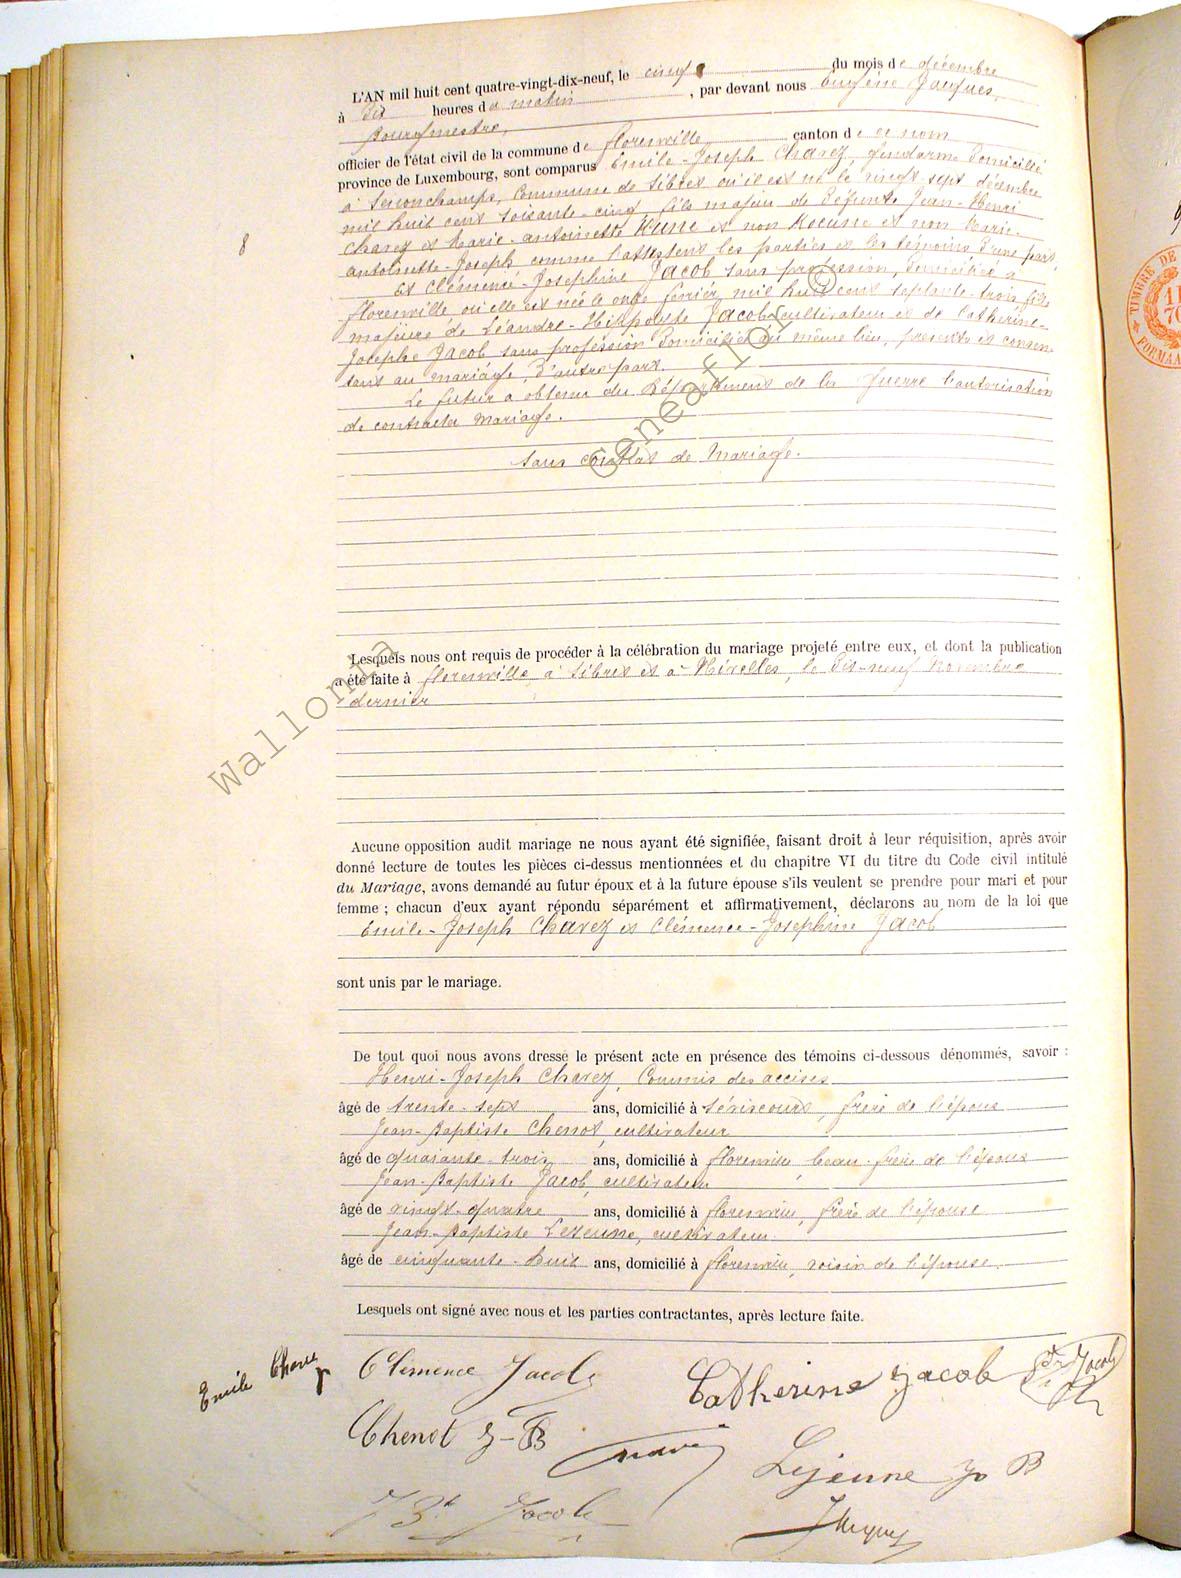 L'AN mil huit cent quatre-vingt-dix-neuf, le cinq du mois de décembre
à dix heures du matin, par devant nous Eugène Jacques,
Bourgmestre,
officier de l'état civil de la commune de Florenville canton de ce nom
province de Luxembourg, sont comparus Emile-Joseph Charez, gendarme domicilié
à Senonchamps, Commune de Sibret où il est né le vingt sept décembre
mil huit cent soixante-cinq fils majeur de défunts Jean-Henri
Charez et Marie-antoinette Hune et non Mocune et non Marie-
antoinette-Joseph comme l'attestent les parties et les témoins d'une part,
8
Et Clémence-Josephine Jacob sans profession, domiciliée à
florenville où elle est née le onze février mil huit cent septante-trois fille
majeure de Léandre-Hippolyte Jacob cultivateur et de Catherine-
Josephe Jacob sans profession domiciliés au même lieu, présents et consen
tant au mariage, d'autre part.
Le futur a obtenu du Département de la guerre l'autorisation
de contracter mariage.
Sans contrat de Mariage.
Lesquels nous ont requis de procéder à la célébration du mariage projeté entre eux, et dont la publication
a été faite à florenville, à Sibret et à Nivelles, le dix-neuf Novembre
dernier
Aucune opposition audit mariage ne nous ayant été signifiée, faisant droit à leur réquisition, après avoir
donné lecture de toutes les pièces ci-dessus mentionnées et du chapitre VI du titre du Code civil intitulé
du Mariage, avons demandé au futur époux et à la future épouse s'ils veulent se prendre pour mari et pour
femme ; chacun d'eux ayant répondu séparément et affirmativement, déclarons au nom de la loi que
Emile-Joseph Charez et Clémence-Josephine Jacob
sont unis par le mariage.
De tout quoi nous avons dressé le présent acte en présence des témoins ci-dessous dénommés, savoir :
Henri-Joseph Charez, Commis des accises
âgé de trente-sept ans, domicilié à frère de l'époux
Jean-Baptiste Chenot, cultivateur
âgé de quarante-trois ans, domicilié à florenville, beau-frère de l'époux
Jean-Baptiste Jacob, cultivateur
âgé de vingt-quatre ans, domicilié à florenville, frère de l'épouse
Jean-Baptiste Lejeune, cultivateur.
âgé de cinquante-huit ans, domicilié à florenville, voisin de l'épouse.
Lesquels ont signé avec nous et les parties contractantes, après lecture faite.
Emile Charez Clémence Jacob Catherine Jacob Jacob
Chenot J-B Lejeune J B
J Bt Jacob Jacques
Wallonia © Geneafior
TIMBRE DE
FORMA